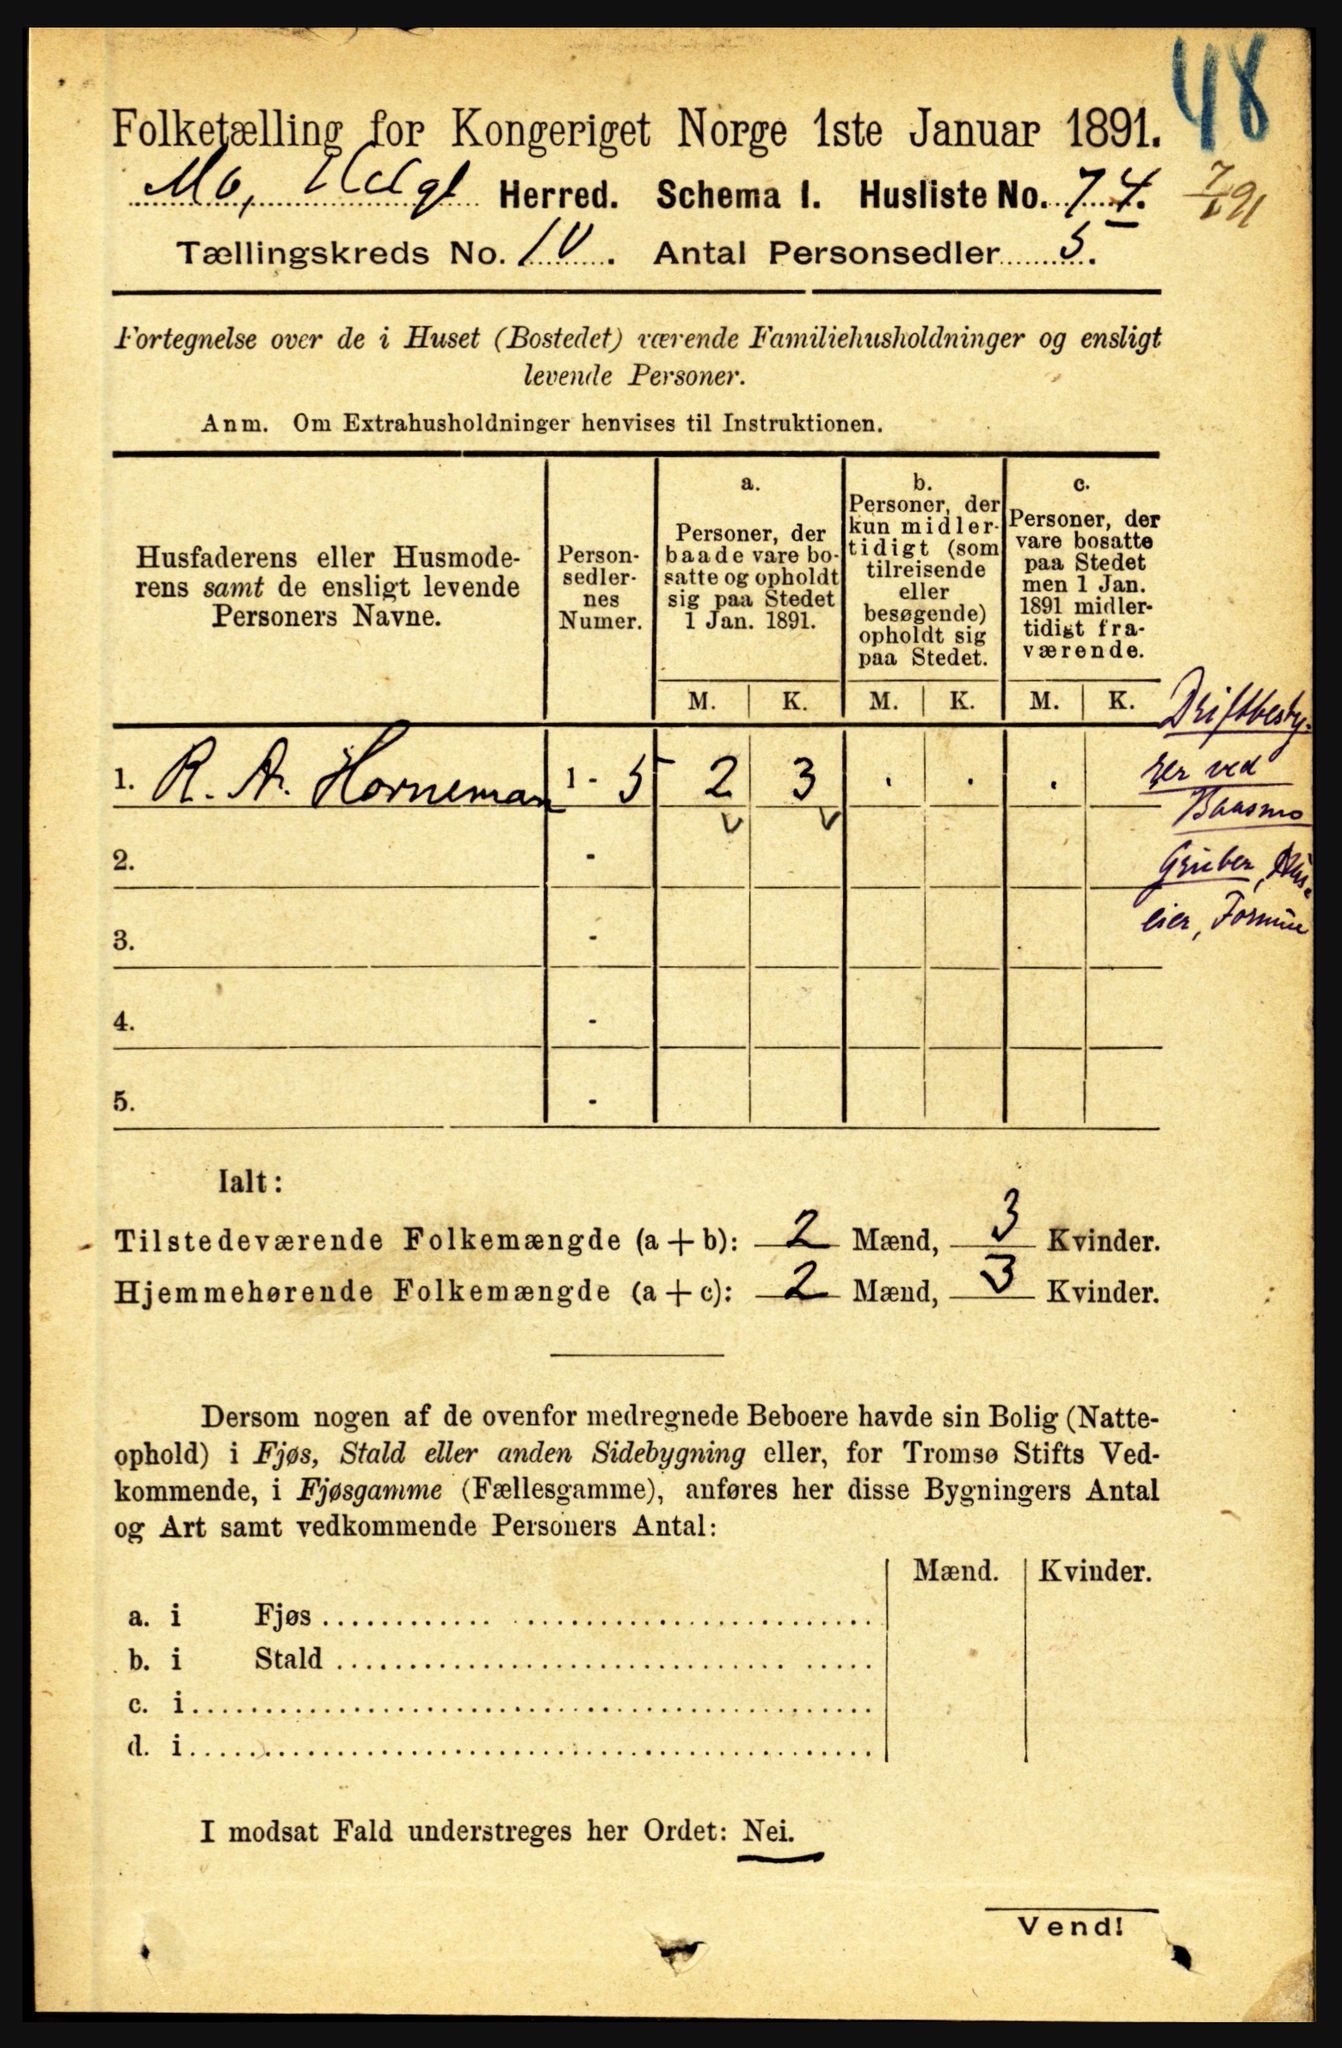 48
Folketælling for Kongeriget Norge 1ste Januar 1891.
Mo, Helgl Herred. Schema I. Husliste No. 74.
7/1 91
Tællingskreds No. IV. Antal Personsedler 5.
Fortegnelse over de i Huset (Bostedet) værende Familiehusholdninger og ensligt
levende Personer.
Anm. Om Extrahusholdninger henvises til Instruktionen.
Husfaderens eller Husmode-
rens samt de ensligt levende
Personers Navne.
Person-
sedler-
nes
Numer.
a.
Personer, der
baade vare bo-
satte og opholdt
sig paa Stedet
1 Jan. 1891.
b.
Personer, der
kun midler-
tidigt (som
tilreisende
eller
besøgende)
opholdt sig
paa Stedet.
c.
Personer, der
vare bosatte
paa Stedet
men 1 Jan.
1891 midler-
tidigt fra-
værende.
M. K. M. K. M. K.
1. R. A. Horneman 1 - 5 2 3 . . .
v v
Driftbesty-
rer ved
Baasmo
Gruber, Hus-
eier, Formue
2. -
3. -
4. -
5. -
Ialt:
Tilstedeværende Folkemængde (a + b): 2 Mænd, 3 Kvinder.
Hjemmehørende Folkemængde (a + c): 2 Mænd, 3 Kvinder.
Dersom nogen af de ovenfor medregnede Beboere havde sin Bolig (Natte-
ophold) i Fjøs, Stald eller anden Sidebygning eller, for Tromsø Stifts Ved-
kommende, i Fjøsgamme (Fællesgamme), anføres her disse Bygningers Antal
og Art samt vedkommende Personers Antal:
Mænd. Kvinder.
a. i Fjøs
b. i Stald
c. i
d. i
I modsat Fald understreges her Ordet: Nei.
Vend!